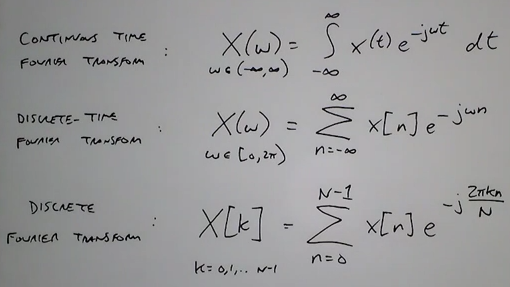 CONTINUOUS TIME
FOURIER TRANSFORM : X(ω) = ∫_{-∞}^{∞} x(t) e^{-jωt} dt
ω∈(-∞,∞)
DISCRETE-TIME
FOURIER TRANSFORM : X(ω) = ∑_{n=-∞}^{∞} x[n] e^{-jωn}
ω∈[0,2π)
DISCRETE
FOURIER TRANSFORM : X[k] = ∑_{n=0}^{N-1} x[n] e^{-j\frac{2πkn}{N}}
k=0,1,.. N-1